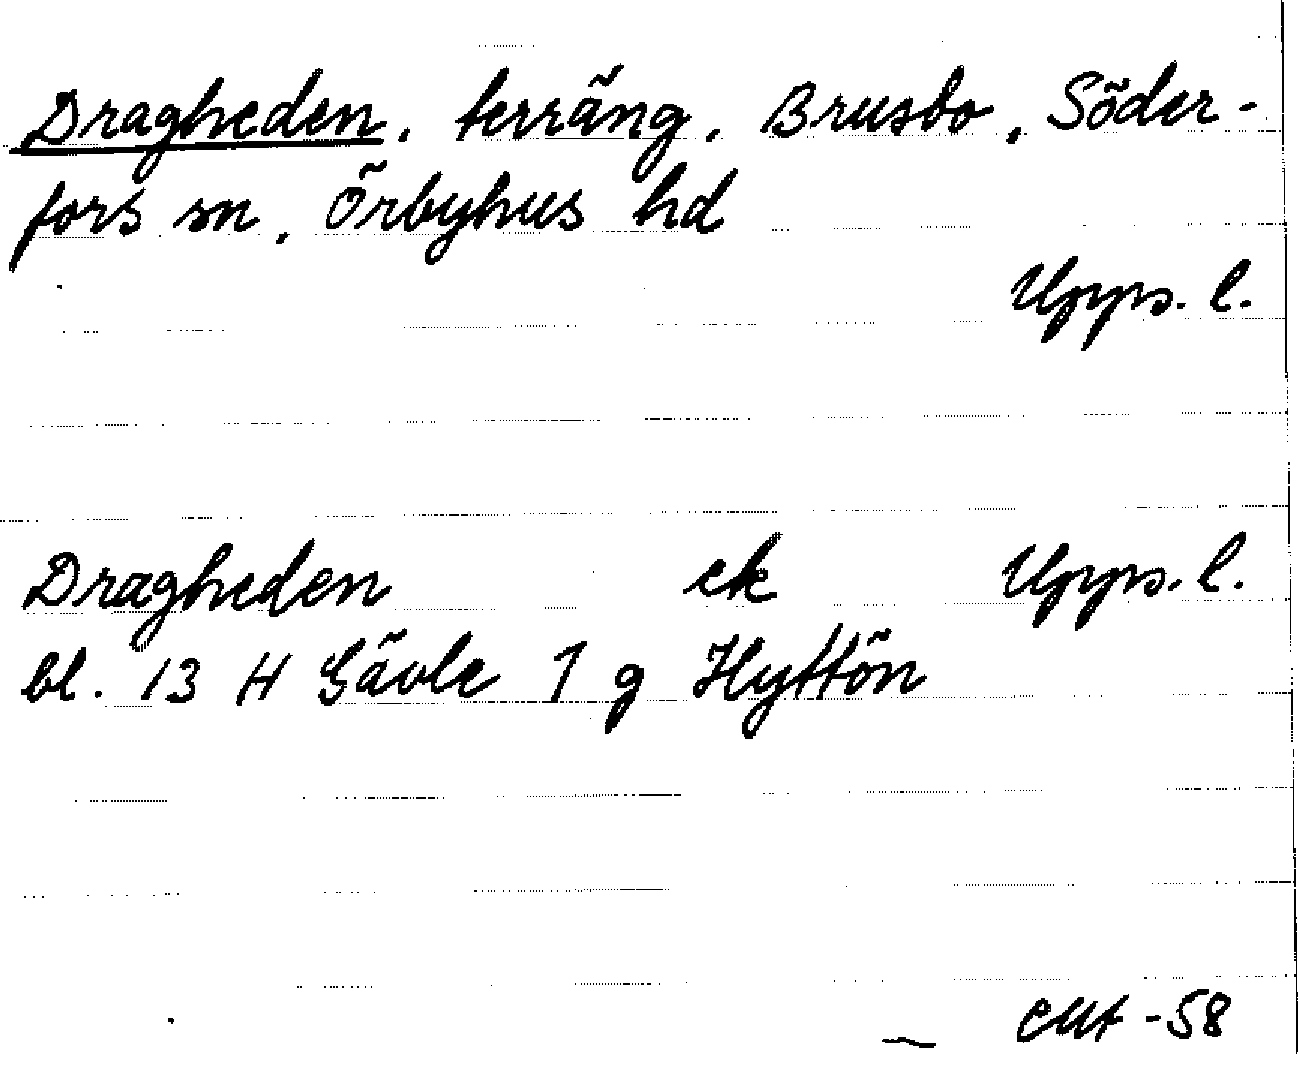 Dragheden, terräng, Brusbo, Söder-
fors sn, Örbyhus hd
Upps. l.
Dragheden ek Upps. l.
bl. 13 H Gävle 7 g Hyttön
CMA -58